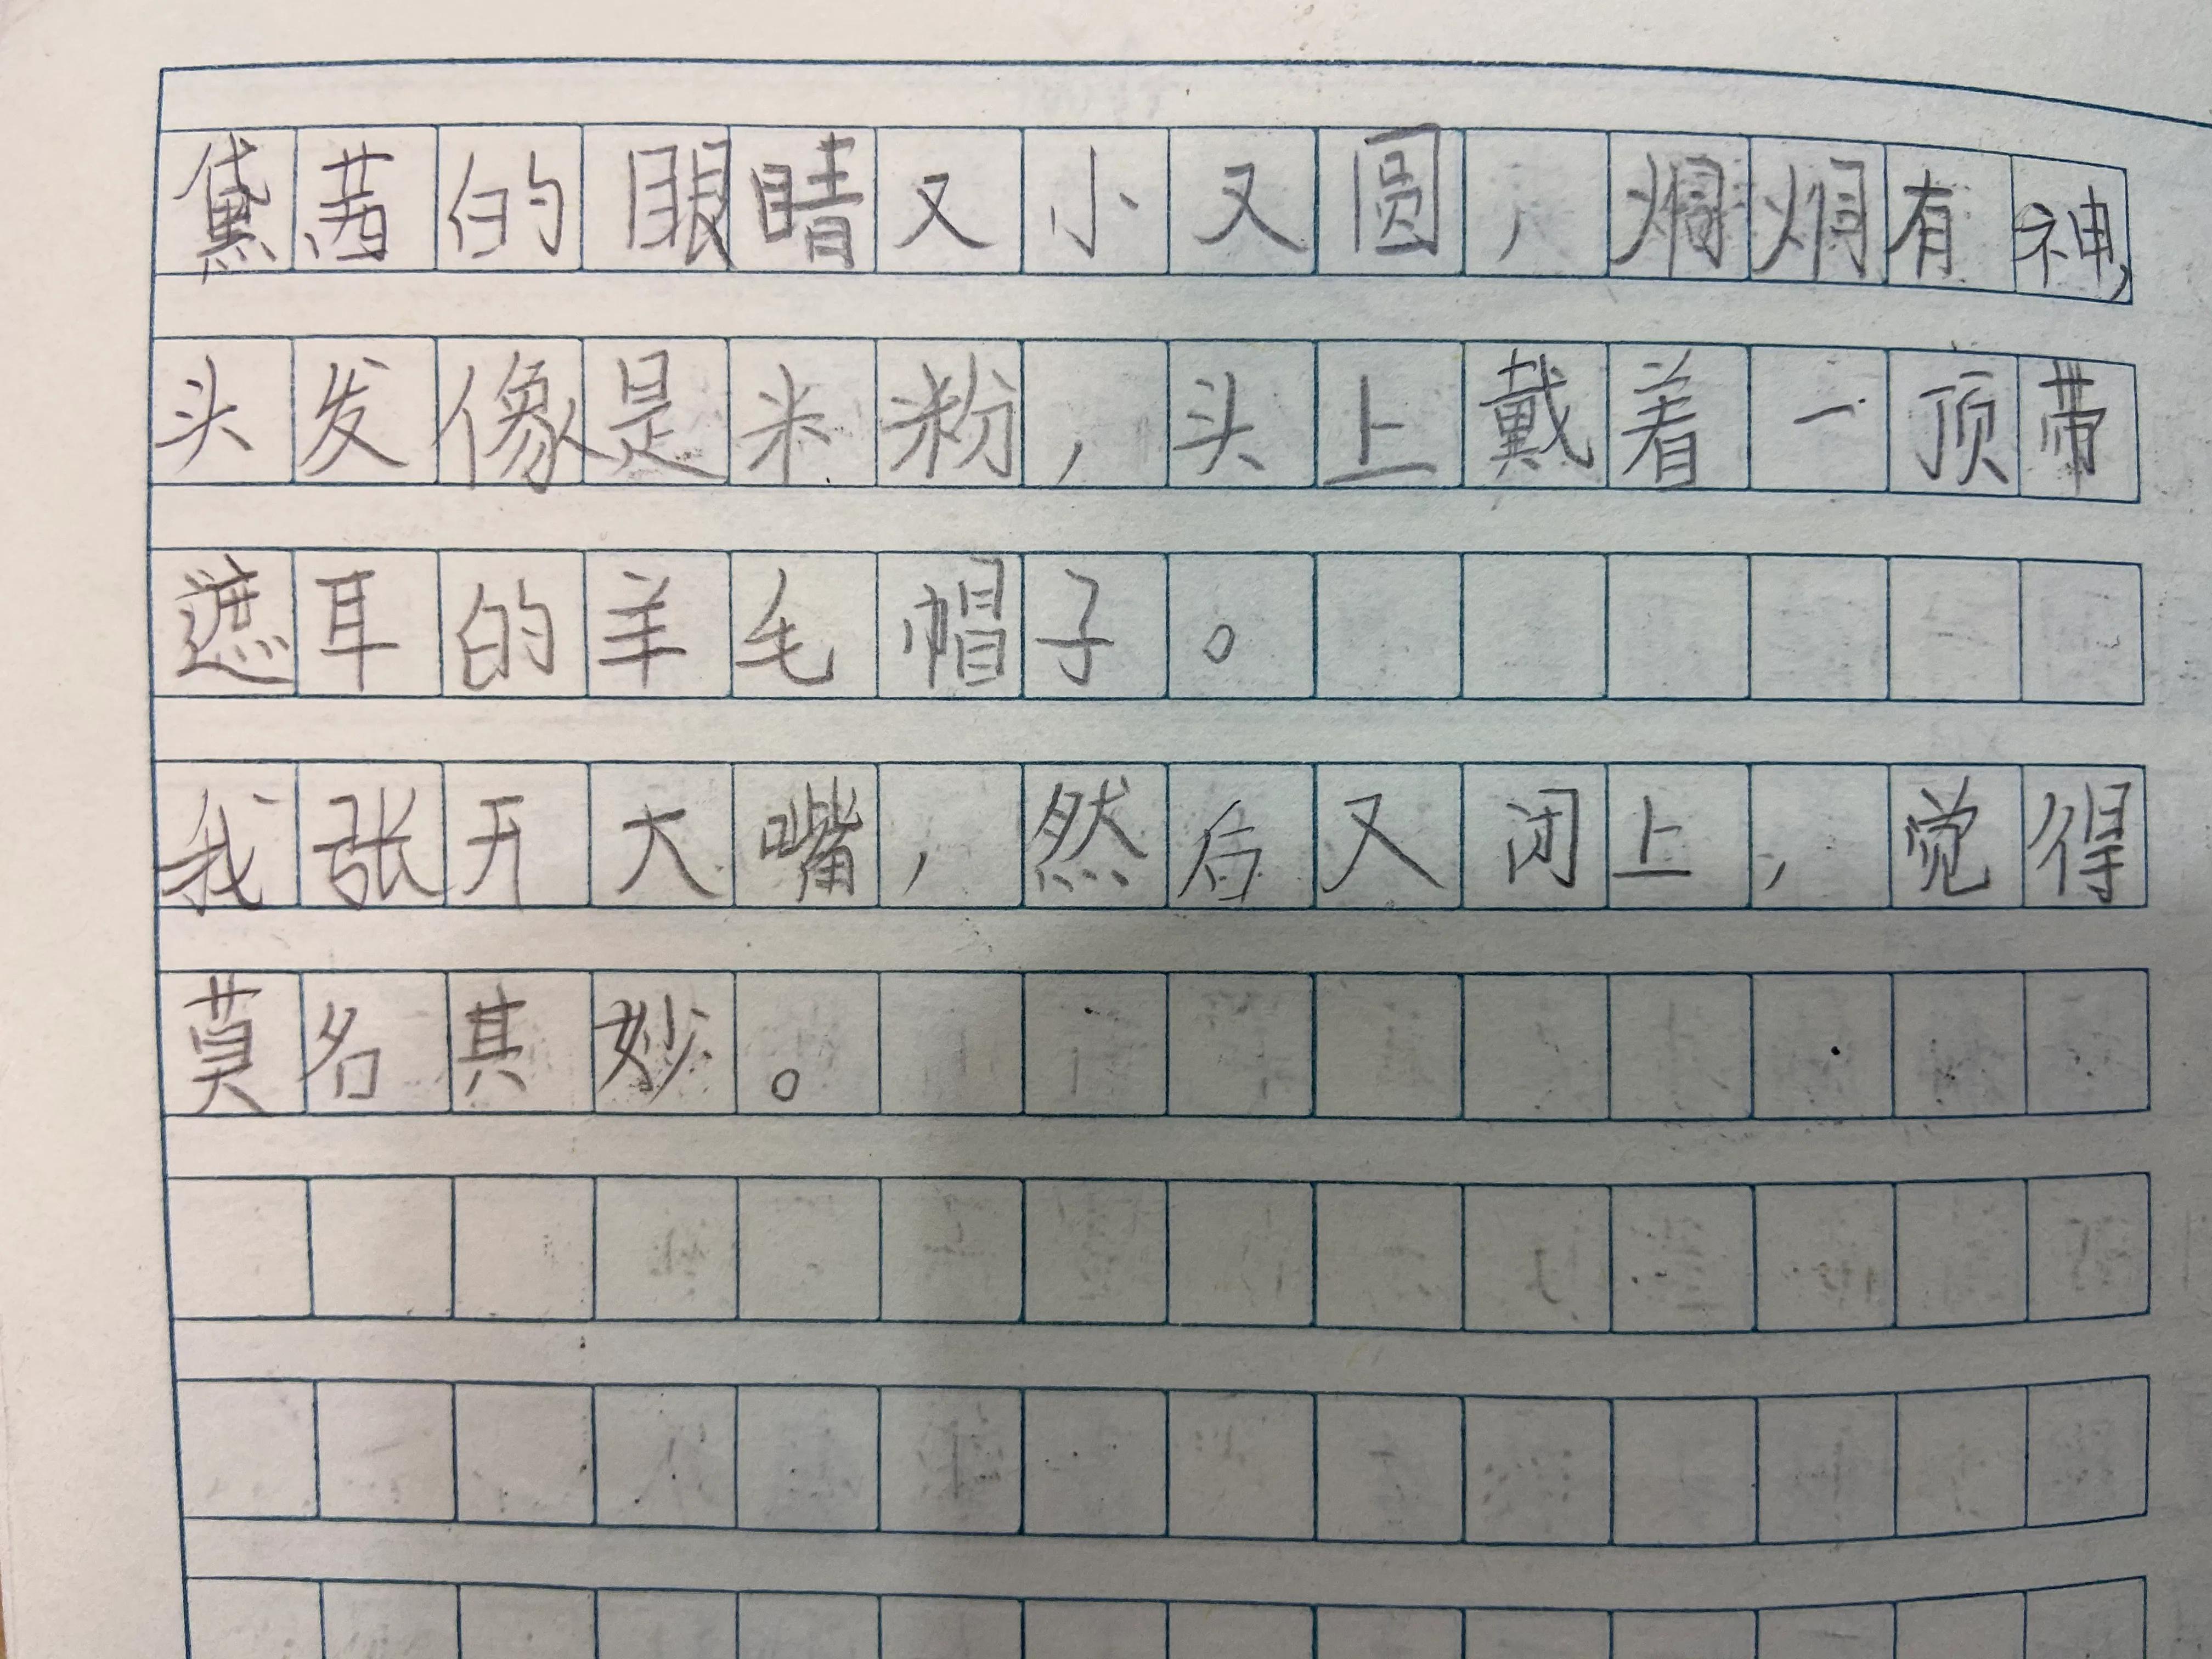 黛茜的眼睛又小又圆，炯炯有神，
头发像是米粉，头上戴着一顶带
遮耳的羊毛帽子。
我张开大嘴，然后又闭上，觉得
莫名其妙。